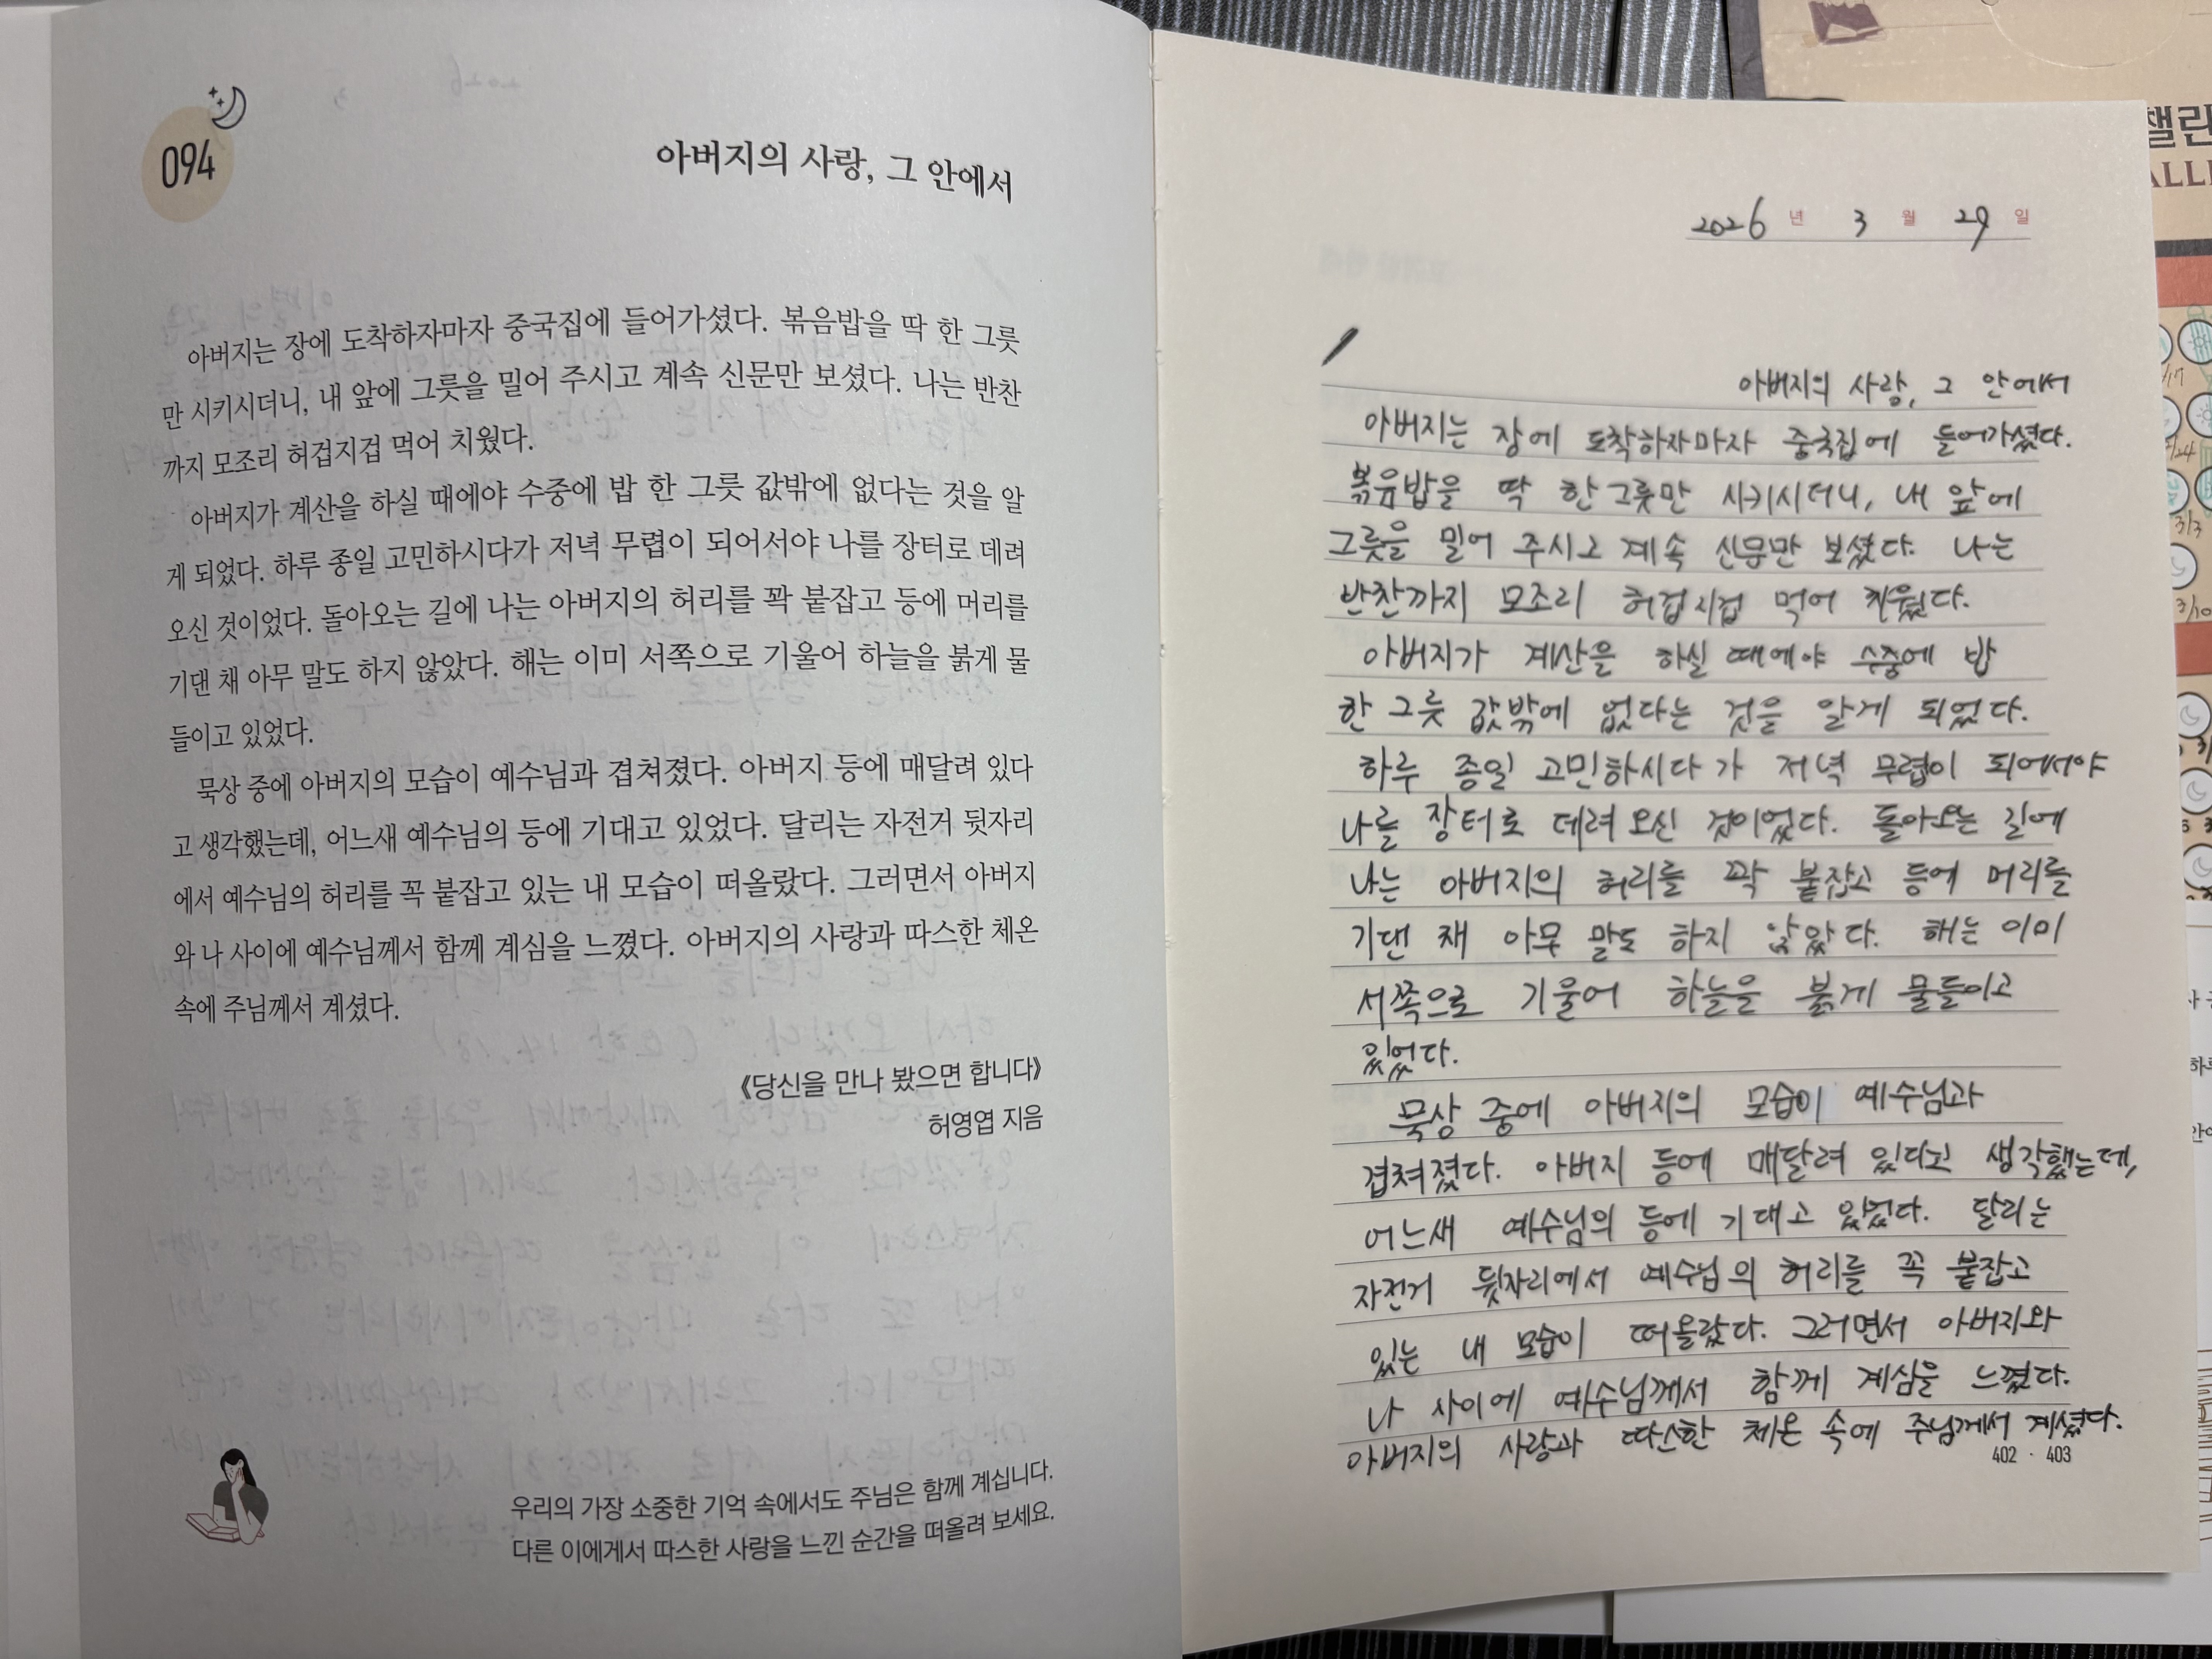 094
아버지의 사랑, 그 안에서
아버지는 장에 도착하자마자 중국집에 들어가셨다. 볶음밥을 딱 한 그릇
만 시키시더니, 내 앞에 그릇을 밀어 주시고 계속 신문만 보셨다. 나는 반찬
까지 모조리 허겁지겁 먹어 치웠다.
아버지가 계산을 하실 때에야 수중에 밥 한 그릇 값밖에 없다는 것을 알
게 되었다. 하루 종일 고민하시다가 저녁 무렵이 되어서야 나를 장터로 데려
오신 것이었다. 돌아오는 길에 나는 아버지의 허리를 꽉 붙잡고 등에 머리를
기댄 채 아무 말도 하지 않았다. 해는 이미 서쪽으로 기울어 하늘을 붉게 물
들이고 있었다.
묵상 중에 아버지의 모습이 예수님과 겹쳐졌다. 아버지 등에 매달려 있다
고 생각했는데, 어느새 예수님의 등에 기대고 있었다. 달리는 자전거 뒷자리
에서 예수님의 허리를 꼭 붙잡고 있는 내 모습이 떠올랐다. 그러면서 아버지
와 나 사이에 예수님께서 함께 계심을 느꼈다. 아버지의 사랑과 따스한 체온
속에 주님께서 계셨다.
《당신을 만나 봤으면 합니다》
허영엽 지음
우리의 가장 소중한 기억 속에서도 주님은 함께 계십니다.
다른 이에게서 따스한 사랑을 느낀 순간을 떠올려 보세요.
2026 년 3 월 29 일
아버지의 사랑, 그 안에서
아버지는 장에 도착하자마자 중국집에 들어가셨다.
볶음밥을 딱 한 그릇만 시키시더니, 내 앞에
그릇을 밀어 주시고 계속 신문만 보셨다. 나는
반찬까지 모조리 허겁지겁 먹어 치웠다.
아버지가 계산을 하실 때에야 수중에 밥
한 그릇 값밖에 없다는 것을 알게 되었다.
하루 종일 고민하시다가 저녁 무렵이 되어서야
나를 장터로 데려오신 것이었다. 돌아오는 길에
나는 아버지의 허리를 꽉 붙잡고 등에 머리를
기댄 채 아무 말도 하지 않았다. 해는 이미
서쪽으로 기울어 하늘을 붉게 물들이고
있었다.
묵상 중에 아버지의 모습이 예수님과
겹쳐졌다. 아버지 등에 매달려 있다고 생각했는데,
어느새 예수님의 등에 기대고 있었다. 달리는
자전거 뒷자리에서 예수님의 허리를 꼭 붙잡고
있는 내 모습이 떠올랐다. 그러면서 아버지와
나 사이에 예수님께서 함께 계심을 느꼈다.
아버지의 사랑과 따스한 체온 속에 주님께서 계셨다.
402 · 403
챌린
ALLE
3/3
3/10